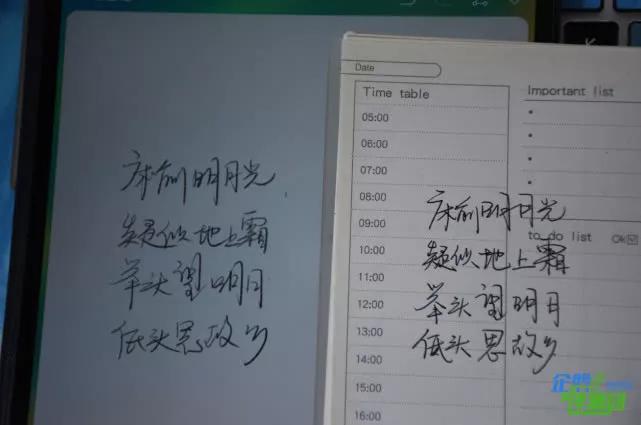 床前明月光
疑似地上霜
举头望明月
低头思故乡
K
Date
Time table
05:00
06:00
07:00
08:00
09:00
10:00
11:00
12:00
13:00
14:00
15:00
16:00
Important list
床前明月光
to do list Ok
疑似地上霜
举头望明月
低头思故乡